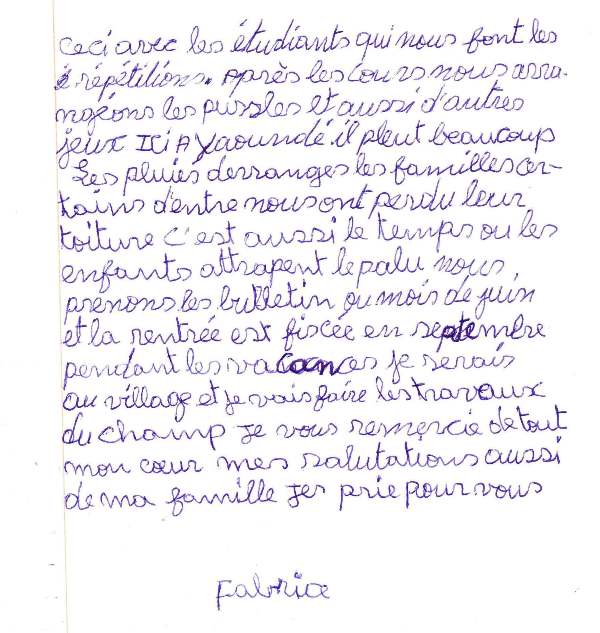 ceci avec les étudiants qui nous font les
répétitions. Après les cours nous arra-
ngéons les pussles et aussi d'autres
jeux ICI A Yaoundé il pleut beaucoup
Les pluies derranges les familles cer-
tains d'entre nous ont perdu leur
toiture c'est aussi le temps ou les
enfants attrapent le palu nous
prenons les bulletin au mois de juin
et la rentrée est fiscée en septembre
pendant les vacances je serais
au village et je vais faire les travaux
du champ Je vous remercie de tout
mon cœur mes salutations aussi
de ma famille Jes prie pour vous
Fabrice